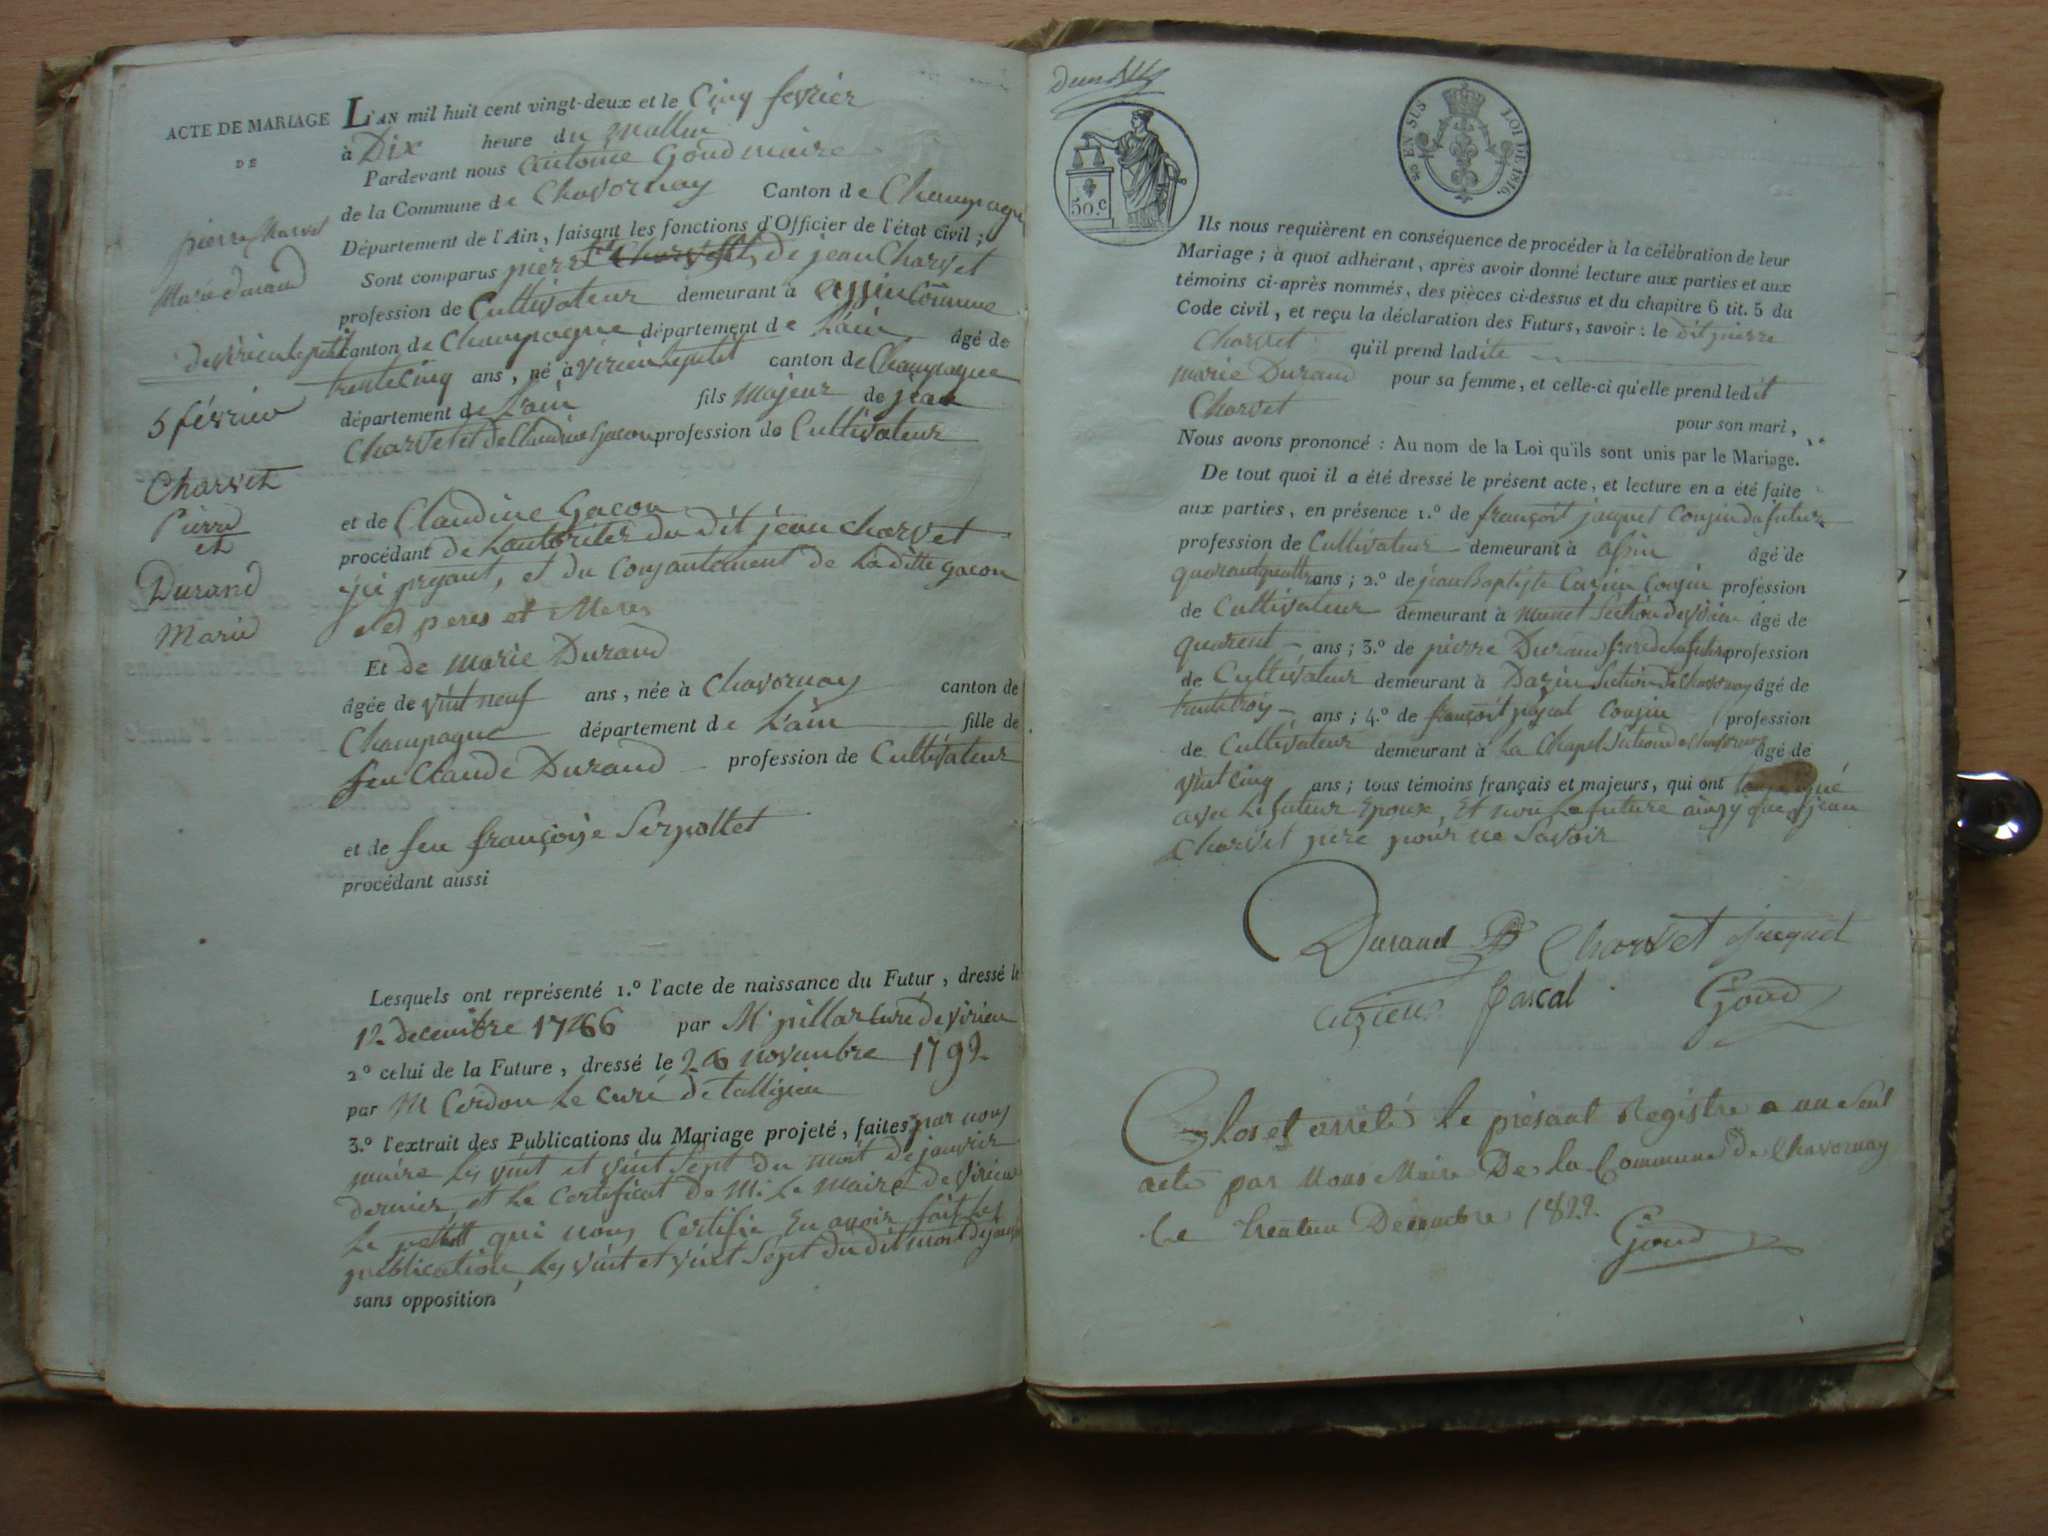 ACTE DE MARIAGE
DE
pierre Charvet
Marie durand
de virieu le petit
5 février
Charvet
Pierre
et
Durand
Marie
L'AN mil huit cent vingt-deux et le Cinq fevrier
à Dix heure du Mattin
Pardevant nous antoine Goud maire
de la Commune de Chavornay Canton de Champagne
Département de l'Ain, faisant les fonctions d'Officier de l'état civil;
Sont comparus pierre Charvet fils de jean Charvet
profession de Cultivateur demeurant à Commune
canton de Champagne département de L'ain âgé de
trente Cinq ans, né à virieu le petit canton de Champagne
département de L'ain fils Majeur de jean
Charvet et de Claudine Gacon profession de Cultivateur
et de Claudine Gacon
procédant de Lautoriter du dit jean Charvet
ici present, et du Consantement de La ditte gacon
ses peres et Meres
Et de marie Durand
âgée de vint neuf ans, née à Chavornay canton de
Champagne département de L'ain fille de
feu Claude Durand profession de Cultivateur
et de feu françoise Serpollet
procédant aussi
Lesquels ont représenté 1.º l'acte de naissance du Futur, dressé le
12 decembre 1786 par Mr pillar Curé de virieu
2º celui de la Future, dressé le 26 novembre 1792
par M Cerdon Le Curé de tallissieu
3.º l'extrait des Publications du Mariage projeté, faites par nous
maire les vint et vint sept du moit de janvier
dernier, et Le Certificat de Mr. Le Maire de virieu
Le petit qui nous Certifie En avoir fait Les
publication, les vint et vint Sept du dit moit de janvier
sans opposition
50.c
EN SUS LOI DE 1816.
Ils nous requièrent en conséquence de procéder à la célébration de leur
Mariage; à quoi adhérant, après avoir donné lecture aux parties et aux
témoins ci-après nommés, des pièces ci-dessus et du chapitre 6 tit. 5 du
Code civil, et reçu la déclaration des Futurs, savoir: le dit pierre
Charvet qu'il prend ladite
marie Durand pour sa femme, et celle-ci qu'elle prend ledit
Charvet pour son mari,
Nous avons prononcé: Au nom de la Loi qu'ils sont unis par le Mariage.
De tout quoi il a été dressé le présent acte, et lecture en a été faite
aux parties, en présence 1.º de françoit jaquet Cousin du futur
profession de Cultivateur demeurant à assin âgé de
quarant quattre ans; 2.º de jean Baptiste Cuzieu Cousin profession
de Cultivateur demeurant à Section de virieu âgé de
quarent ans; 3.º de pierre Durand frere de la future profession
de Cultivateur demeurant à Dazin Section de Chavornay âgé de
trente troiy ans; 4.º de françoit pascal Cousin profession
de Cultivateur demeurant à La Chapel Section de Chavornay âgé de
vint Cinq ans; tous témoins français et majeurs, qui ont signé
avec Le futeur Epoux, Et non La future ainsy que jean
Charvet pere pour ne Savoir
Durand Charvet jaquet
Cuzieu Pascal Goud
Clos et arrêté Le présant Registre a un Seul
acte par Nous Maire De La Commune de Chavornay
Le trenteun Décembre 1822
Goud